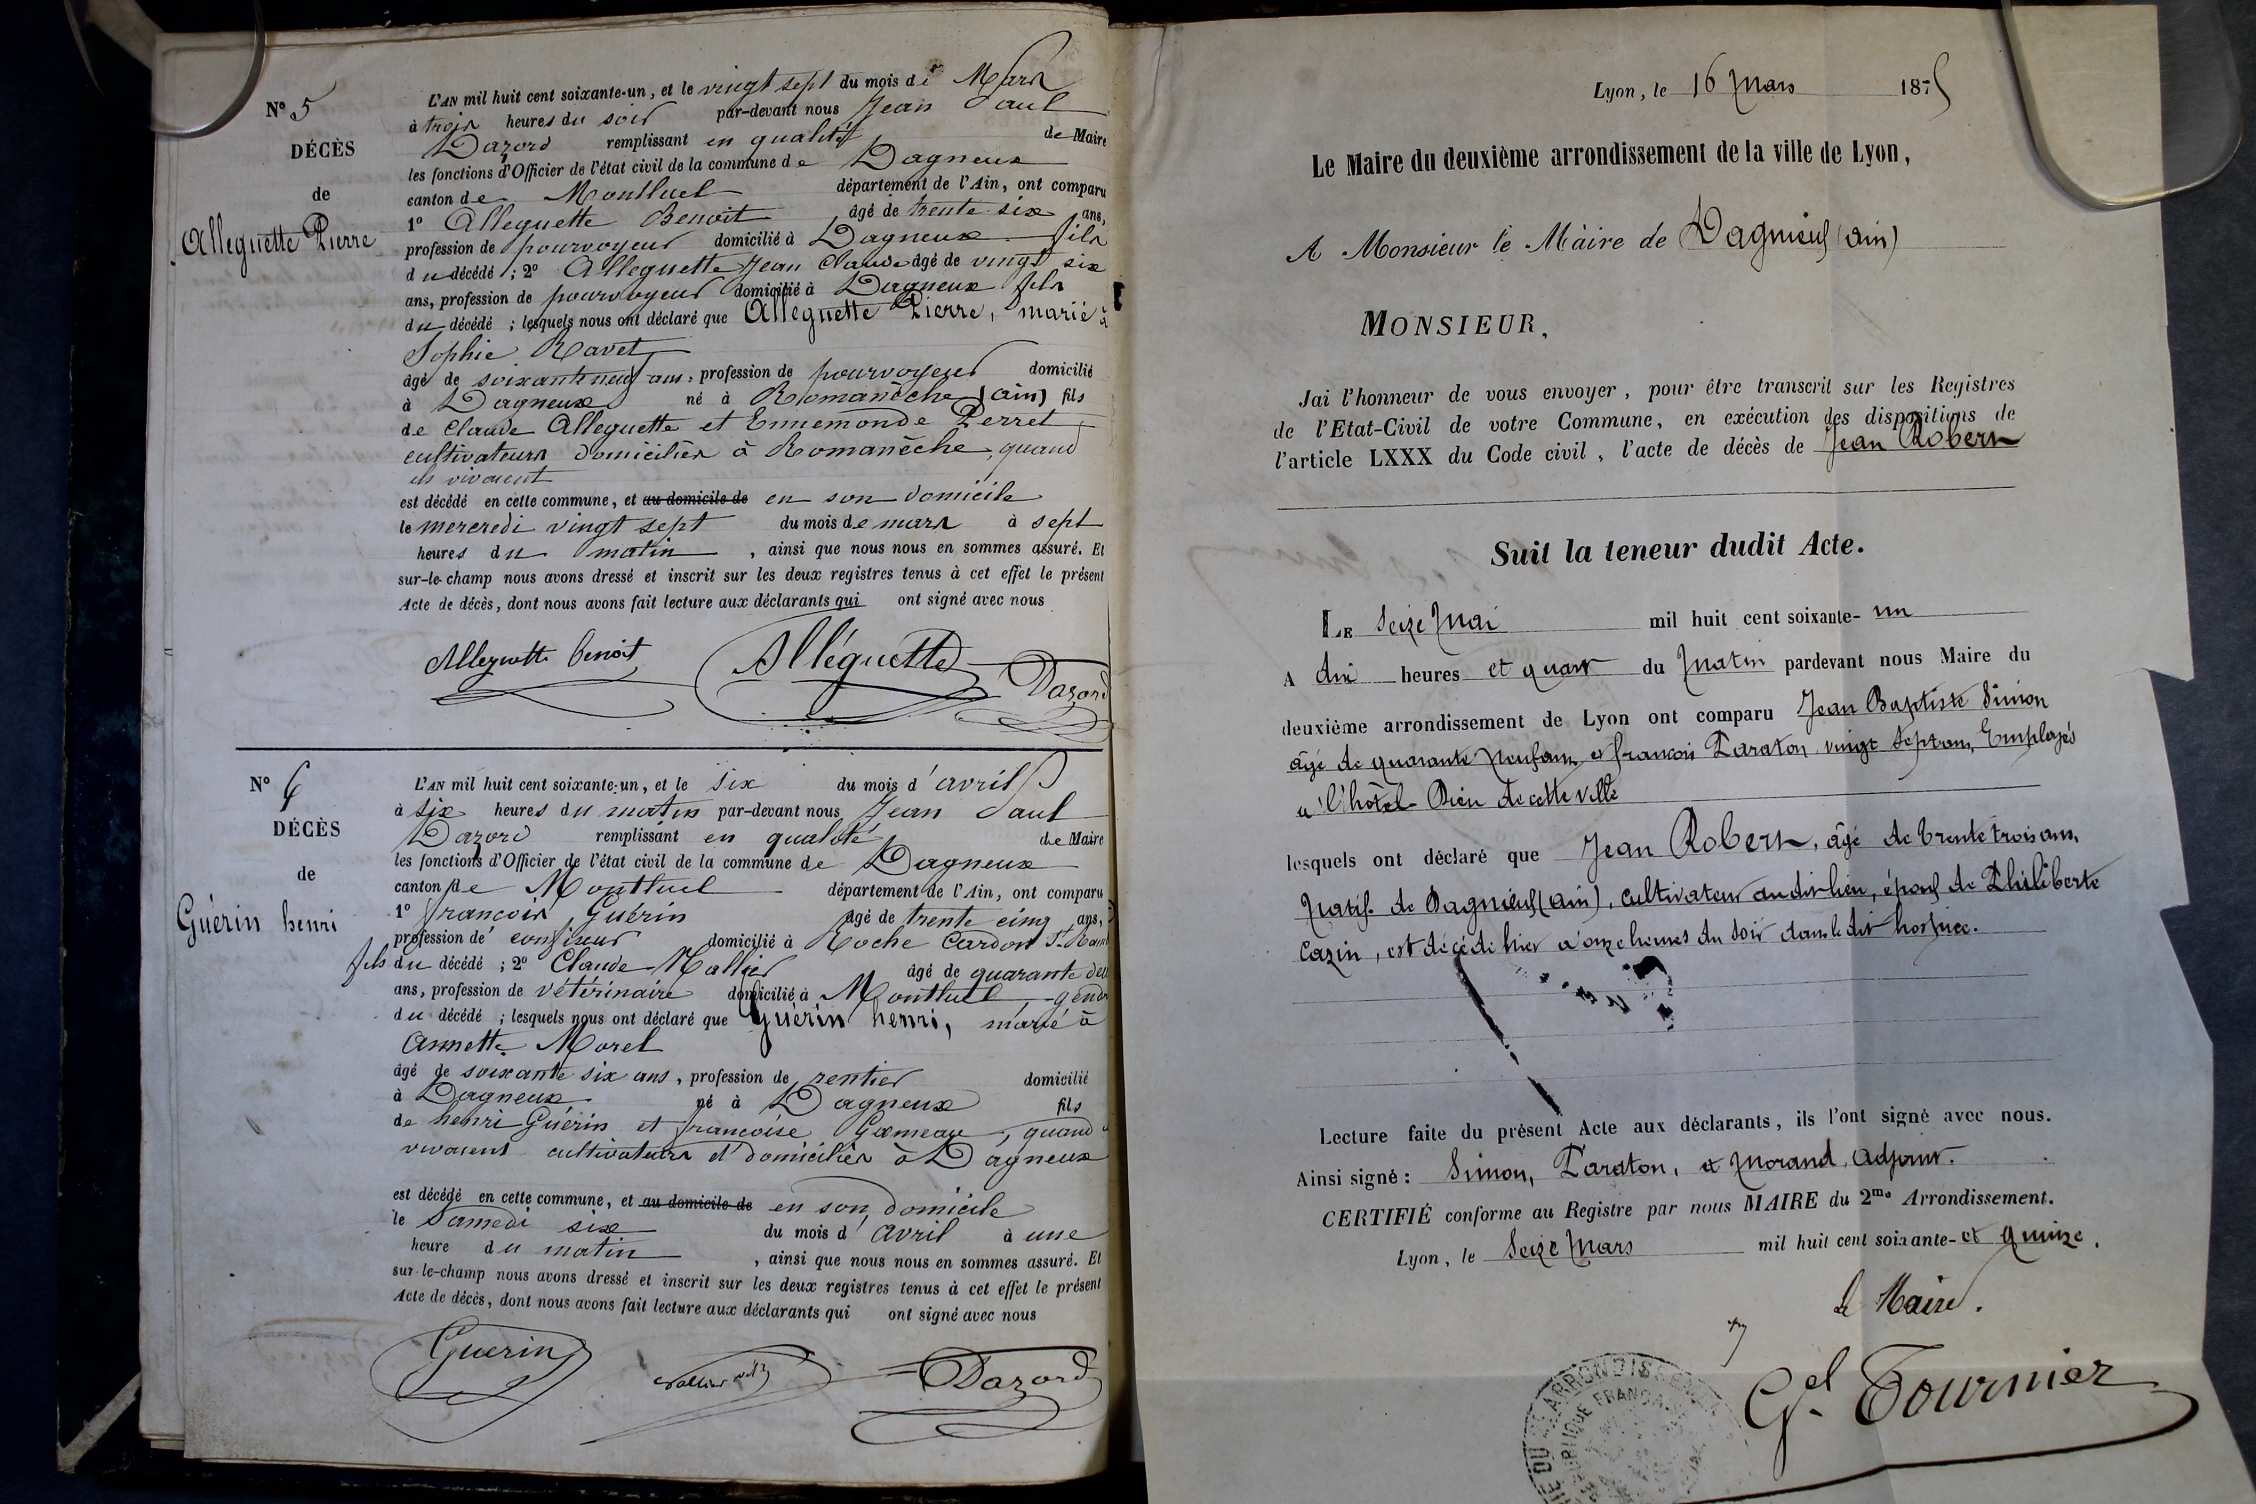 N° 5
DÉCÈS
de
Alleguette Pierre
L'AN mil huit cent soixante-un, et le vingt sept du mois de Mars
à trois heures du soir par-devant nous Jean Paul
Dazord remplissant en qualité de Maire
les fonctions d'Officier de l'état civil de la commune de Dagneux
canton de Montluel département de l'Ain, ont comparu
1° Alleguette Benoit âgé de trente six ans,
profession de pourvoyeur domicilié à Dagneux fils
du décédé ; 2° Alleguette Jean Claude âgé de vingt six
ans, profession de pourvoyeur domicilié à Dagneux fils
du décédé ; lesquels nous ont déclaré que Alleguette Pierre, marié à
Sophie Ravet
âgé de soixante neuf ans, profession de pourvoyeur domicilié
à Dagneux né à Romanèche (ain) fils
de Claude Alleguette et Ennemonde Perret
cultivateurs domiciliés à Romanèche, quand
ils vivaient
est décédé en cette commune, et au domicile de en son domicile
le mercredi vingt sept du mois de mars à sept
heures du matin, ainsi que nous nous en sommes assuré. Et
sur-le-champ nous avons dressé et inscrit sur les deux registres tenus à cet effet le présent
Acte de décès, dont nous avons fait lecture aux déclarants qui ont signé avec nous
Alleguette benoit Alléguette Dazord
N° 6
DÉCÈS
de
Guérin henri
L'AN mil huit cent soixante-un, et le six du mois d'avril
à six heures du matin par-devant nous Jean Paul
Dazord remplissant en qualité de Maire
les fonctions d'Officier de l'état civil de la commune de Dagneux
canton de Montluel département de l'Ain, ont comparu
1° françois Guérin âgé de trente cinq ans,
profession de confiseur domicilié à Roche Cardon St
fils du décédé ; 2° Claude Mallier âgé de quarante deux
ans, profession de vétérinaire domicilié à Montluel, gendre
du décédé ; lesquels nous ont déclaré que Guérin henri, marié à
Annette Morel
âgé de soixante six ans, profession de rentier domicilié
à Dagneux né à Dagneux fils
de henri Guérin et françoise, quand
vivaient cultivateurs et domiciliés à Dagneux
est décédé en cette commune, et au domicile de en son domicile
le Samedi six du mois d'avril à une
heure du matin, ainsi que nous nous en sommes assuré. Et
sur-le-champ nous avons dressé et inscrit sur les deux registres tenus à cet effet le présent
Acte de décès, dont nous avons fait lecture aux déclarants qui ont signé avec nous
Guerin Dazord
Lyon, le 16 Mars 1875
Le Maire du deuxième arrondissement de la ville de Lyon,
A Monsieur le Maire de Dagnieux (ain)
MONSIEUR,
Jai l'honneur de vous envoyer, pour être transcrit sur les Registres
de l'Etat-Civil de votre Commune, en exécution des dispositions de
l'article LXXX du Code civil, l'acte de décès de Jean Robert
Suit la teneur dudit Acte.
LE Seize Mai mil huit cent soixante-un
A dix heures et quart du Matin pardevant nous Maire du
deuxième arrondissement de Lyon ont comparu Jean Baptiste Simon
âgé de quarante Neuf ans et françois Paraton, vingt Sept ans, Employés
à l'hôtel-Dieu de cette ville
lesquels ont déclaré que Jean Robert, âgé de trente trois ans,
Natif de Dagnieux (ain), cultivateur audit lieu, époux de Philiberte
Cazin, est décédé hier à onze heures du Soir dans le dit hospice.
Lecture faite du présent Acte aux déclarants, ils l'ont signé avec nous.
Ainsi signé : Simon, Paraton, et Morand, Adjoint.
CERTIFIÉ conforme au Registre par nous MAIRE du 2me Arrondissement.
Lyon, le Seize Mars mil huit cent soixante-et quinze.
Le Maire.
Gel Tournier